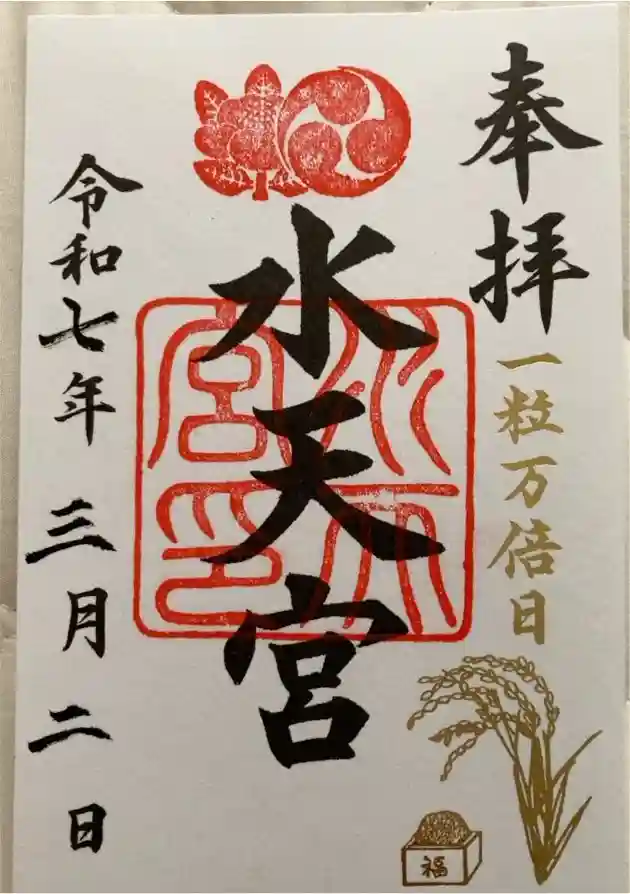 奉拝
一粒万倍日
福
水天宮
水天宮印
令和七年 三月 二日